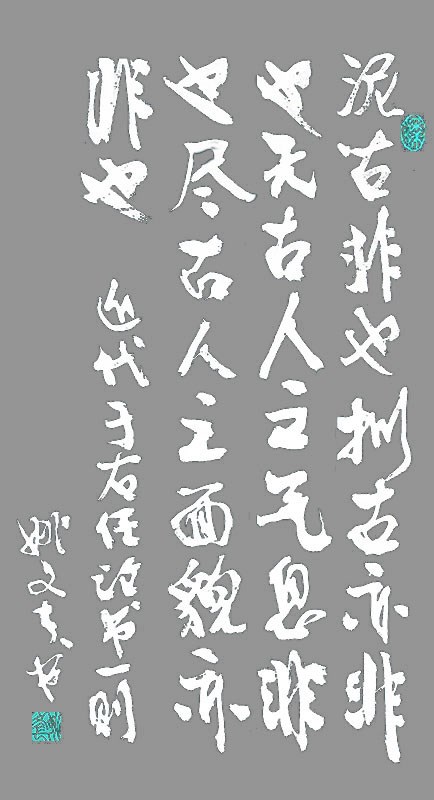 泥古非也拟古亦非
也无古人之气息非
也尽古人之面貌亦
非也 近代于右任论书一则
文 书